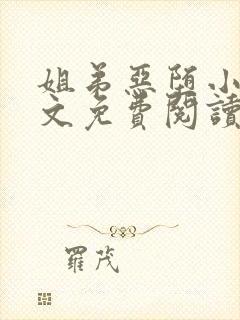 姐弟惡墮小
文免費閱讀
羅茂